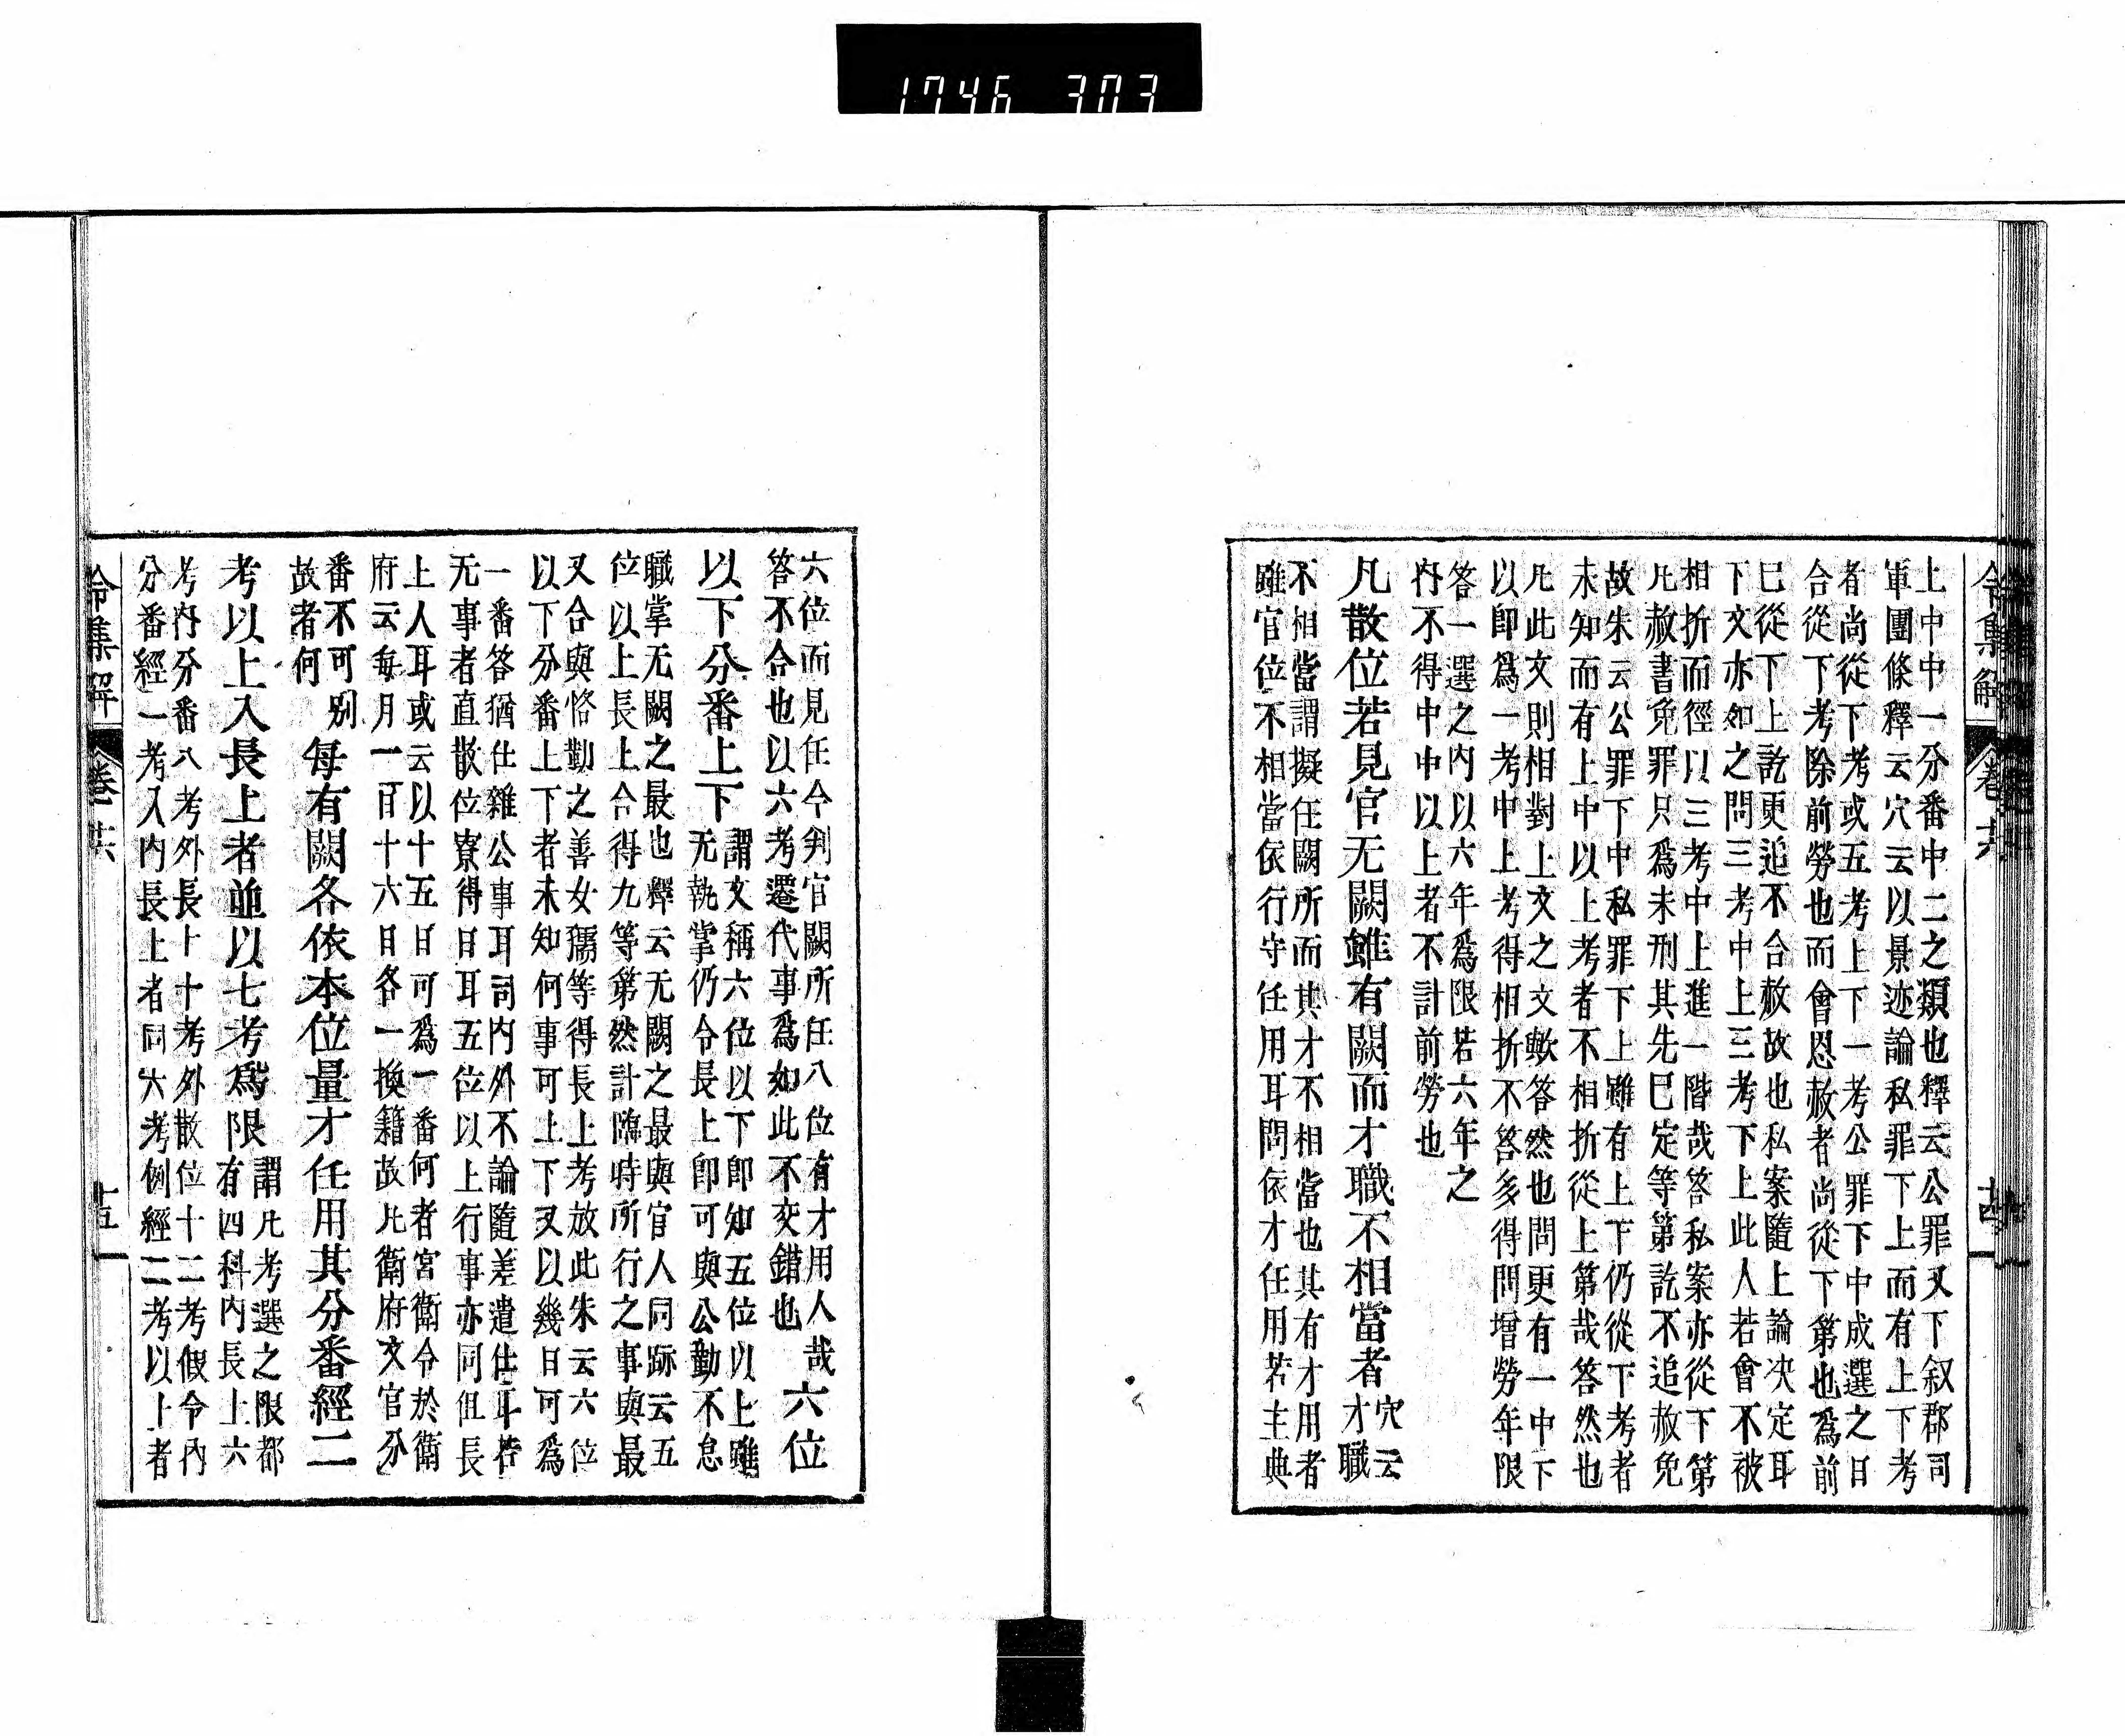 1746 303
令集解 卷十六 十四
上中中一分番中二之類也釋云公罪又下叙郡司
軍團條釋云穴云以景迹論私罪下上而有上下考
者尚從下考或五考上下一考公罪下中成選之日
合從下考除前勞也而會恩赦者尚從下第也為前
巳從下上訖更追不合赦故也私案隨上論决定耳
下文亦如之問三考中上三考下上此人若會不被
相折而徑以三考中上進一階哉答私案亦從下第
凡赦書免罪只爲未刑其先巳定等第訖不追赦免
故朱云公罪下中私罪下上雖有上下仍從下考者
未知而有上中以上考者不相折從上第哉答然也
凡此文則相對上文之文歟答然也問更有一中下
以卽爲一考中上考得相折不答多得問增勞年限
答一選之内以六年爲限若六年之
内不得中中以上者不計前勞也
凡散位若見官无闕雖有闕而才職不相當者
穴云
才職
不相當謂擬任闕所而其才不相當也其有才用者
雖官位不相當依行守任用耳問依才任用若主典
六位而見任今判官闕所任八位有才用人哉
答不合也以六考遷代事爲如此不交錯也
六位
以下分番上下
謂文稱六位以下卽知五位以上雖
无執掌仍令長上卽可與公勤不怠
職掌无闕之最也釋云无闕之最與官人同跡云五
位以上長上合得九等第然計臨時所行之事與最
又合與恪勤之善女孺等得長上考放此朱云六位
以下分番上下者未知何事可上下又以幾日可爲
一番答猶仕雜公事耳司内外不論隨差遣仕耳若
无事者直散位寮得日耳五位以上行事亦同但長
上人耳或云以十五日可爲一番何者宮衛令於衛
府云每月一日十六日各一換籍故凡衛府文官分
番不可別
故者何
每有闕各依本位量才任用其分番經二
考以上入長上者並以七考爲限
謂凡考選之限都
有四科内長上六
考内分番八考外長上十考外散位十二考假令内
分番經一考入内長上者同六考例經二考以上者
令集解 卷十六 十五